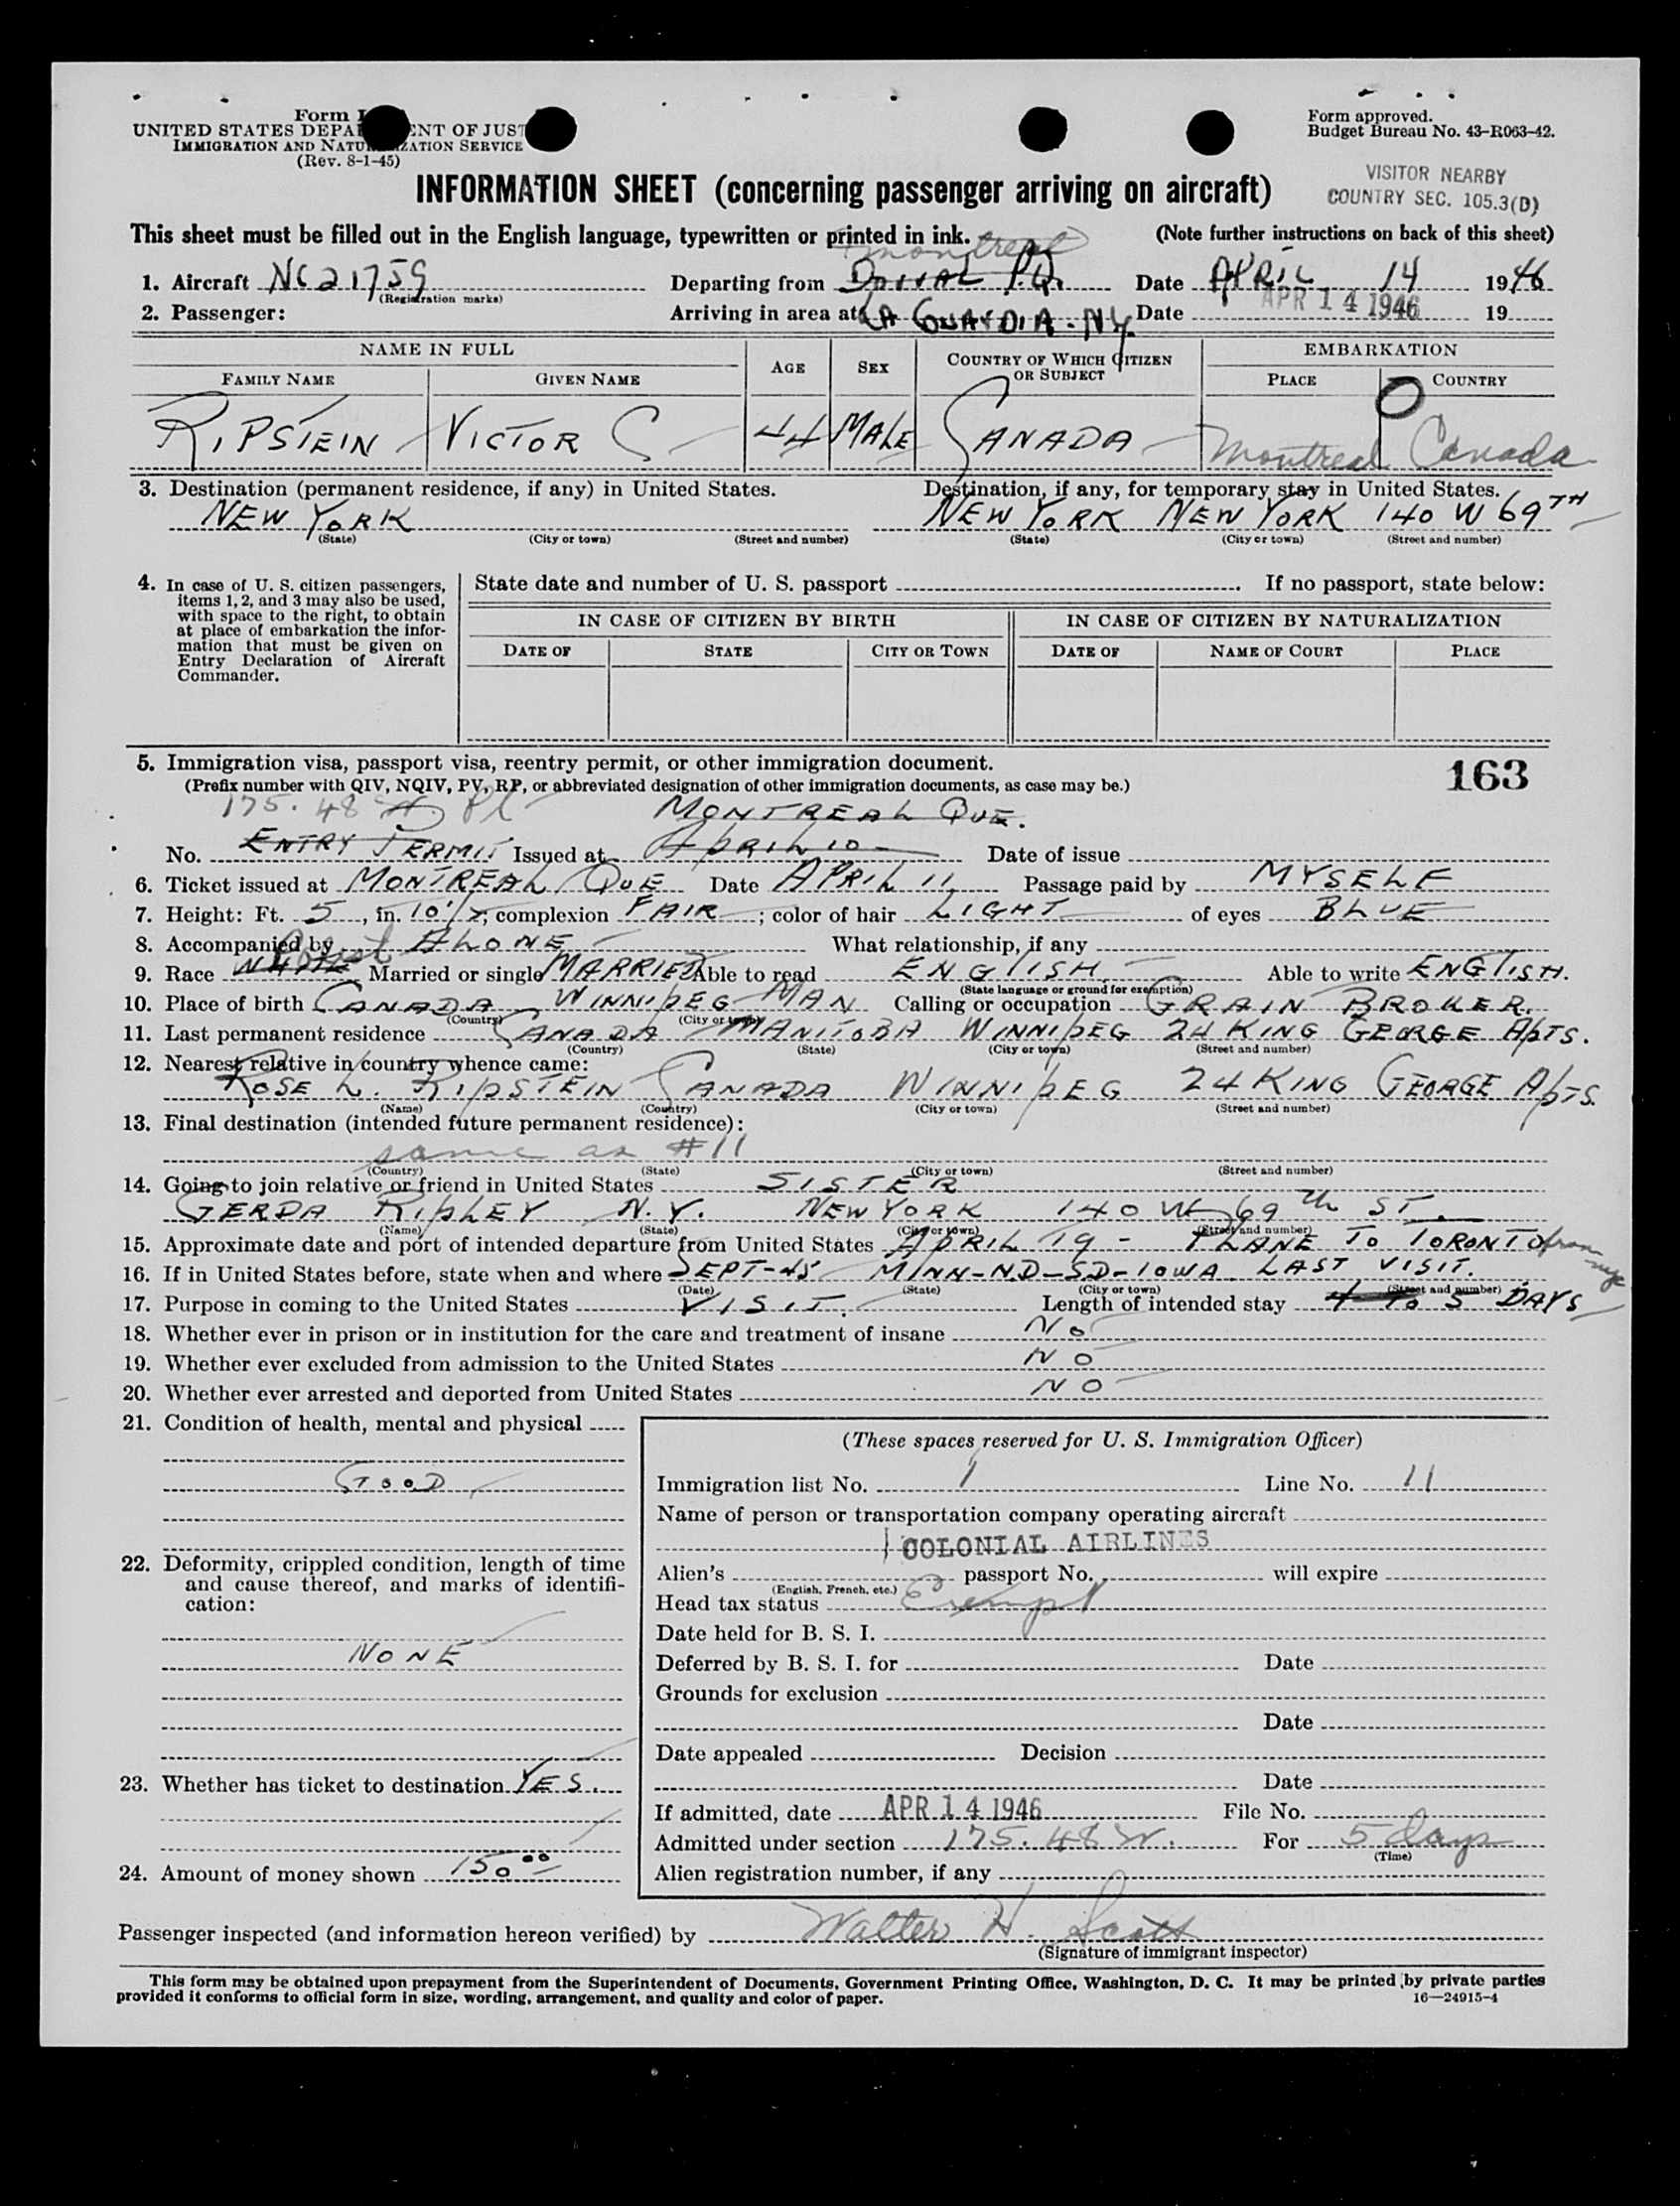 Form I
UNITED STATES DEPA ENT OF JUST
IMMIGRATION AND NATU ZATION SERVICE
(Rev. 8-1-45)
Form approved.
Budget Bureau No. 43-R063-42.
VISITOR NEARBY
COUNTRY SEC. 105.3(D)
INFORMATION SHEET (concerning passenger arriving on aircraft)
This sheet must be filled out in the English language, typewritten or printed in ink.
(Note further instructions on back of this sheet)
Montreal
1. Aircraft NC21759 Departing from DORVAL P.Q. Date APRIL 14 1946
(Registration marks)
2. Passenger: Arriving in area at LA GUARDIA - NY. Date APR 14 1946 19
NAME IN FULL AGE SEX COUNTRY OF WHICH CITIZEN OR SUBJECT EMBARKATION
FAMILY NAME GIVEN NAME PLACE COUNTRY
RIPSTEIN VICTOR C 44 MALE CANADA Montreal Canada
3. Destination (permanent residence, if any) in United States. Destination, if any, for temporary stay in United States.
NEW YORK NEW YORK NEW YORK 140 W 69TH
(State) (City or town) (Street and number) (State) (City or town) (Street and number)
4. In case of U. S. citizen passengers, items 1, 2, and 3 may also be used, with space to the right, to obtain at place of embarkation the information that must be given on Entry Declaration of Aircraft Commander.
State date and number of U. S. passport . If no passport, state below:
IN CASE OF CITIZEN BY BIRTH IN CASE OF CITIZEN BY NATURALIZATION
DATE OF STATE CITY OR TOWN DATE OF NAME OF COURT PLACE
5. Immigration visa, passport visa, reentry permit, or other immigration document.
163
(Prefix number with QIV, NQIV, PV, RP, or abbreviated designation of other immigration documents, as case may be.)
175.48 MONTREAL QUE.
No. ENTRY PERMIT Issued at APRIL 10 Date of issue
6. Ticket issued at MONTREAL QUE Date APRIL 11 Passage paid by MYSELF
7. Height: Ft. 5, in. 10 1/2; complexion FAIR; color of hair LIGHT of eyes BLUE
8. Accompanied by ALONE What relationship, if any
9. Race WHITE Married or single MARRIED Able to read ENGLISH Able to write ENGLISH.
(State language or ground for exemption)
10. Place of birth CANADA WINNIPEG MAN Calling or occupation GRAIN BROKER.
(Country) (City or town)
11. Last permanent residence CANADA MANITOBA WINNIPEG 24 KING GEORGE APTS.
(Country) (State) (City or town) (Street and number)
12. Nearest relative in country whence came:
ROSE L. RIPSTEIN CANADA WINNIPEG 24 KING GEORGE APTS.
(Name) (Country) (City or town) (Street and number)
13. Final destination (intended future permanent residence):
same as #11
(Country) (State) (City or town) (Street and number)
14. Going to join relative or friend in United States SISTER
GERDA RIPLEY N.Y. NEW YORK 140 W 69th ST.
(Name) (State) (City or town) (Street and number)
15. Approximate date and port of intended departure from United States APRIL 19 - PLANE TO TORONTO from nyc
16. If in United States before, state when and where SEPT-45 MINN-ND-SD-IOWA LAST VISIT.
(Date) (State) (City or town) (Street and number)
17. Purpose in coming to the United States VISIT. Length of intended stay 4 TO 5 DAYS
18. Whether ever in prison or in institution for the care and treatment of insane NO
19. Whether ever excluded from admission to the United States NO
20. Whether ever arrested and deported from United States NO
21. Condition of health, mental and physical
GOOD
22. Deformity, crippled condition, length of time and cause thereof, and marks of identification:
NONE
23. Whether has ticket to destination YES.
24. Amount of money shown 150.00
(These spaces reserved for U. S. Immigration Officer)
Immigration list No. 1 Line No. 11
Name of person or transportation company operating aircraft
COLONIAL AIRLINES
Alien's passport No. will expire
(English, French, etc.)
Head tax status Exempt
Date held for B. S. I.
Deferred by B. S. I. for Date
Grounds for exclusion
Date
Date appealed Decision
Date
If admitted, date APR 14 1946 File No.
Admitted under section 175.48 For 5 days
(Time)
Alien registration number, if any
Passenger inspected (and information hereon verified) by Walter H. Scott
(Signature of immigrant inspector)
This form may be obtained upon prepayment from the Superintendent of Documents, Government Printing Office, Washington, D. C. It may be printed by private parties
provided it conforms to official form in size, wording, arrangement, and quality and color of paper. 16—24915-4